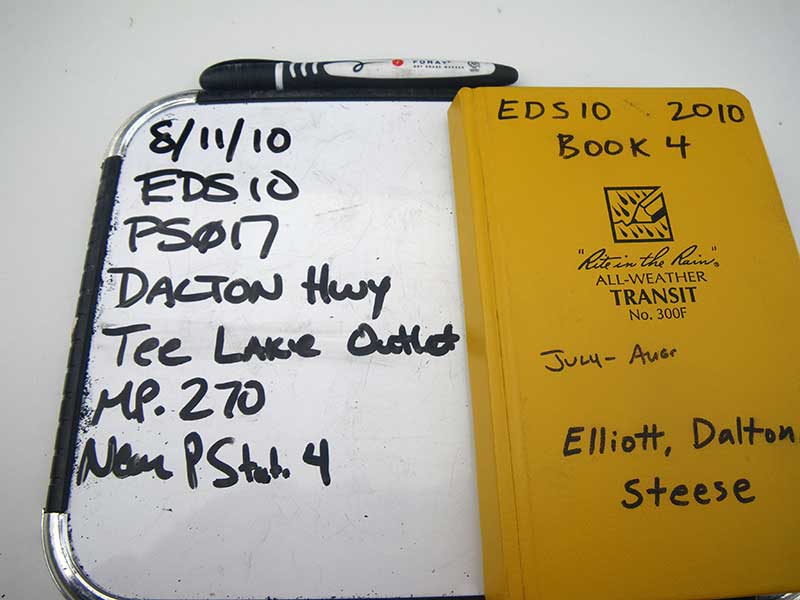 FORAY
8/11/10
EDS10
PSØ17
DALTON Hwy
Tee Lake Outlet
MP. 270
Near P Stat. 4
EDS10 2010
BOOK 4
"Rite in the Rain"®
ALL-WEATHER
TRANSIT
No. 300F
JULY - AUG
Elliott, Dalton
Steese